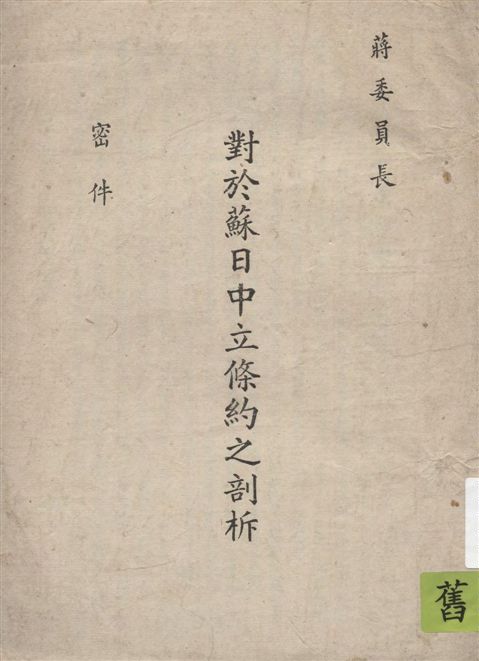 蔣委員長
對於蘇日中立條約之剖柝
密件
舊